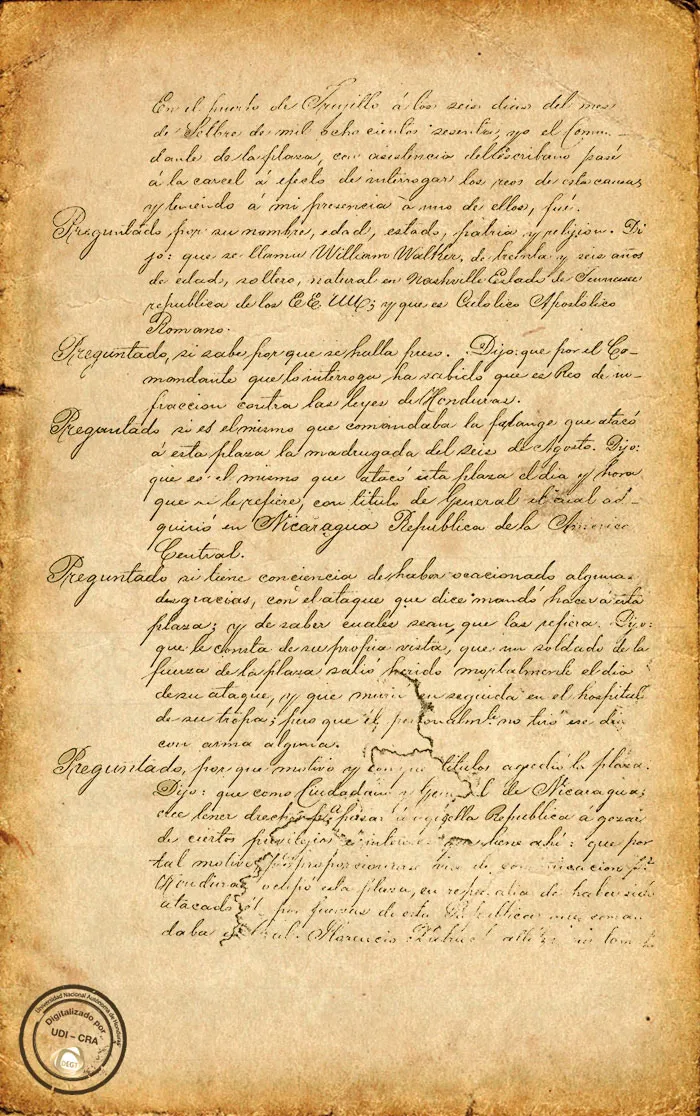 En el puerto de Trujillo á los seis dias del mes
de Setbre de mil ocho cientos sesenta, yo el Coman-
dante de la plaza, con asistencia del escribano pasé
á la carcel á efecto de interrogar los reos de esta causa
y teniendo á mi presencia á uno de ellos, fué.
Preguntado por su nombre, edad, estado, patria y religion. Di
jo: que se llama William Walker, de treinta y seis años
de edad, soltero, natural en Nashville Estado de Tennasee
republica de los EE. UU; y que es Catolico Apostólico
Romano.
Preguntado, si sabe por que se halla preso. Dijo: que por el Co-
mandante que lo interroga ha sabido que es Reo de in-
fraccion contra las leyes de Honduras.
Preguntado si es el mismo que comandaba la falange que atacó
á esta plaza la madrugada del seis de Agosto. Dijo:
que es el mismo que atacó esta plaza el dia y hora
que se le refiere, con titulo de General el cual ad-
quirió en Nicaragua Republica de la America
Central.
Preguntado si tiene conciencia de haber ocacionado algunas
desgracias, con el ataque que dice mandó hacer á esta
plaza; y de saber cuales sean, que las refiera. Dijo:
que le consta de su propia vista, que un soldado de la
fuerza de la plaza salió herido mortalmente el dia
de su ataque, y que murió en seguida en el hospital
de su tropa; pero que él personalmte no tiró ese dia
con arma alguna.
Preguntado, por que motivo y con que titulos agredió la plaza.
Dijo: que como Ciudadano y General de Nicaragua;
cree tener derecho para pasar á aquella Republica á gozar
de ciertos privilejios é intereses que tiene ahi: que por
tal motivo de comunicacion
Honduras ocupó esta plaza, en represalia de haber sido
atacado él por fuerzas de esta Republica que coman
daba el Gral. Florencio